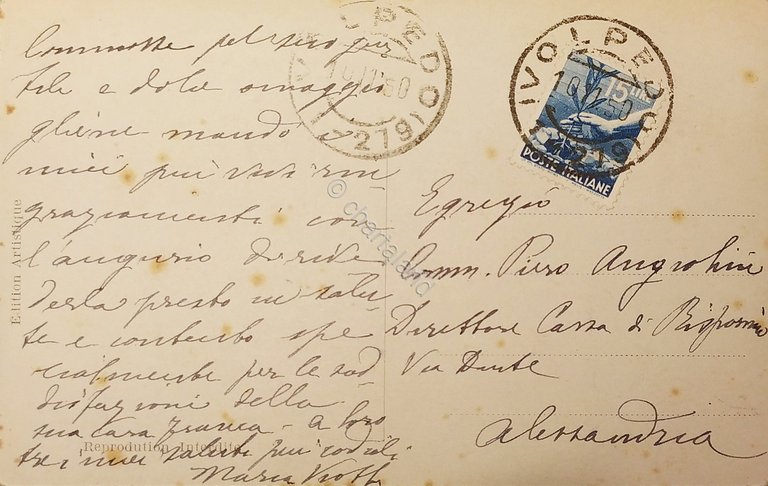 Commossa pel suo gen
tile e dolce omaggio
gliene mando i
miei più vivi rin
graziamenti con
l'augurio di rive
derla presto in salu-
te e contento spe
cialmente per le sod
disfazioni della
sua cara Franca - a loro
tre i miei saluti più cordiali
Maria
Edition Artistique
Reproduction Interdite
VOLPEDO
(279)
VOLPEDO
15 LIRE
POSTE ITALIANE
Egregio
Comm. Piero
Direttore Cassa di Risparmio
Via Dante
Alessandria
© chartaland